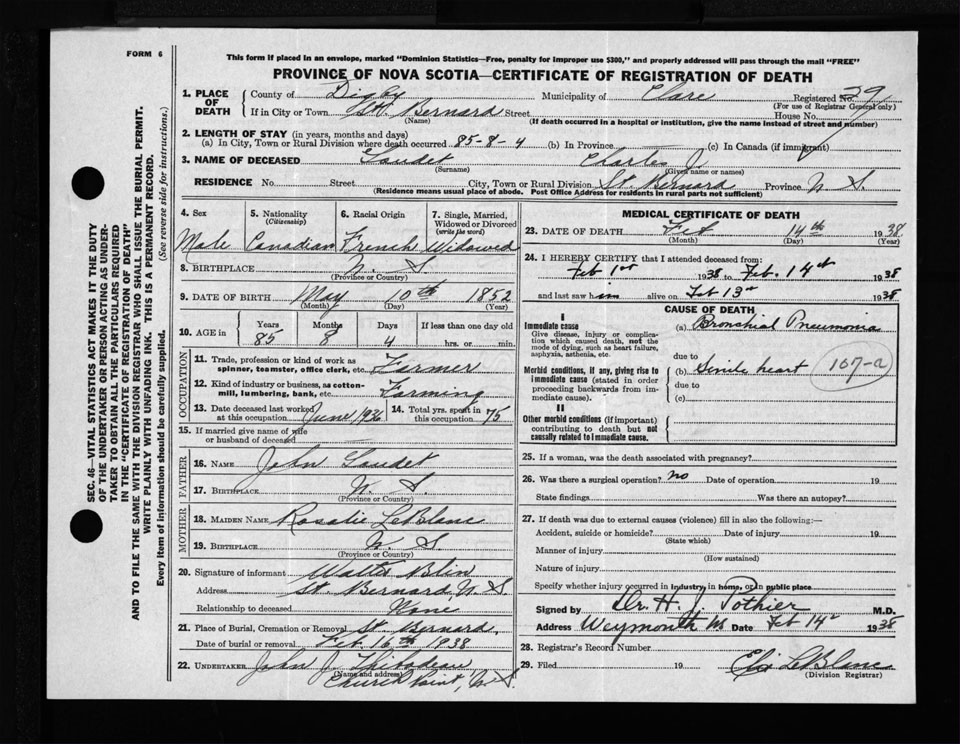 FORM 6
This form if placed in an envelope, marked "Dominion Statistics—Free, penalty for improper use $300," and properly addressed will pass through the mail "FREE"
PROVINCE OF NOVA SCOTIA—CERTIFICATE OF REGISTRATION OF DEATH
1. PLACE OF DEATH
County of Digby Municipality of Clare Registered No. 39
(For use of Registrar General only)
If in City or Town St. Bernard Street House No.
(Name) (If death occurred in a hospital or institution, give the name instead of street and number)
2. LENGTH OF STAY (in years, months and days)
(a) In City, Town or Rural Division where death occurred 85-8-4 (b) In Province (c) In Canada (if immigrant)
3. NAME OF DECEASED Gaudet Charles J.
(Surname) (Given name or names)
RESIDENCE No. Street City, Town or Rural Division St. Bernard Province N. S.
(Residence means usual place of abode. Post Office Address for residents in rural parts not sufficient)
4. Sex
Male
5. Nationality (Citizenship)
Canadian
6. Racial Origin
French
7. Single, Married, Widowed or Divorced (write the word)
Widowed
8. BIRTHPLACE N. S.
(Province or Country)
9. DATE OF BIRTH May 10th 1852
(Month) (Day) (Year)
10. AGE in Years Months Days If less than one day old
85 8 4 hrs. or min.
OCCUPATION
11. Trade, profession or kind of work as spinner, teamster, office clerk, etc. Farmer
12. Kind of industry or business, as cotton-mill, lumbering, bank, etc. Farming
13. Date deceased last worked at this occupation June 1936
14. Total yrs. spent in this occupation 75
15. If married give name of wife or husband of deceased
FATHER
16. NAME John Gaudet
17. BIRTHPLACE N. S.
(Province or Country)
MOTHER
18. MAIDEN NAME Rosalie LeBlanc
19. BIRTHPLACE N. S.
(Province or Country)
20. Signature of informant Walter Blin
Address St. Bernard, N. S.
Relationship to deceased None
21. Place of Burial, Cremation or Removal St. Bernard,
Date of burial or removal Feb. 16th 1938
22. UNDERTAKER John J. Thibodeau
(Name and address)
Church Point, N. S.
MEDICAL CERTIFICATE OF DEATH
23. DATE OF DEATH Feb 14th 1938
(Month) (Day) (Year)
24. I HEREBY CERTIFY that I attended deceased from:
Feb 1st 1938 to Feb. 14th 1938
and last saw him alive on Feb 13th 1938
CAUSE OF DEATH
I
Immediate cause
Give disease, injury or complication which caused death, not the mode of dying, such as heart failure, asphyxia, asthenia, etc.
(a) Bronchial Pneumonia
due to
Morbid conditions, if any, giving rise to immediate cause (stated in order proceeding backwards from immediate cause).
(b) Senile heart
107-a
due to
(c)
II
Other morbid conditions (if important) contributing to death but not causally related to immediate cause.
25. If a woman, was the death associated with pregnancy?
26. Was there a surgical operation? no Date of operation 19
State findings Was there an autopsy?
27. If death was due to external causes (violence) fill in also the following:—
Accident, suicide or homicide? Date of injury 19
(State which)
Manner of injury
(How sustained)
Nature of injury
Specify whether injury occurred in industry, in home, or in public place
Signed by Dr. H. J. Pothier M.D.
Address Weymouth Date Feb 14th 1938
28. Registrar's Record Number
29. Filed 19 LeBlanc
(Division Registrar)
SEC. 46—VITAL STATISTICS ACT MAKES IT THE DUTY
OF THE UNDERTAKER OR PERSON ACTING AS UNDER-
TAKER TO OBTAIN ALL THE PARTICULARS REQUIRED
IN THE "CERTIFICATE OF REGISTRATION OF DEATH"
AND TO FILE THE SAME WITH THE DIVISION REGISTRAR WHO SHALL ISSUE THE BURIAL PERMIT.
WRITE PLAINLY WITH UNFADING INK. THIS IS A PERMANENT RECORD.
Every item of information should be carefully supplied. (See reverse side for instructions.)